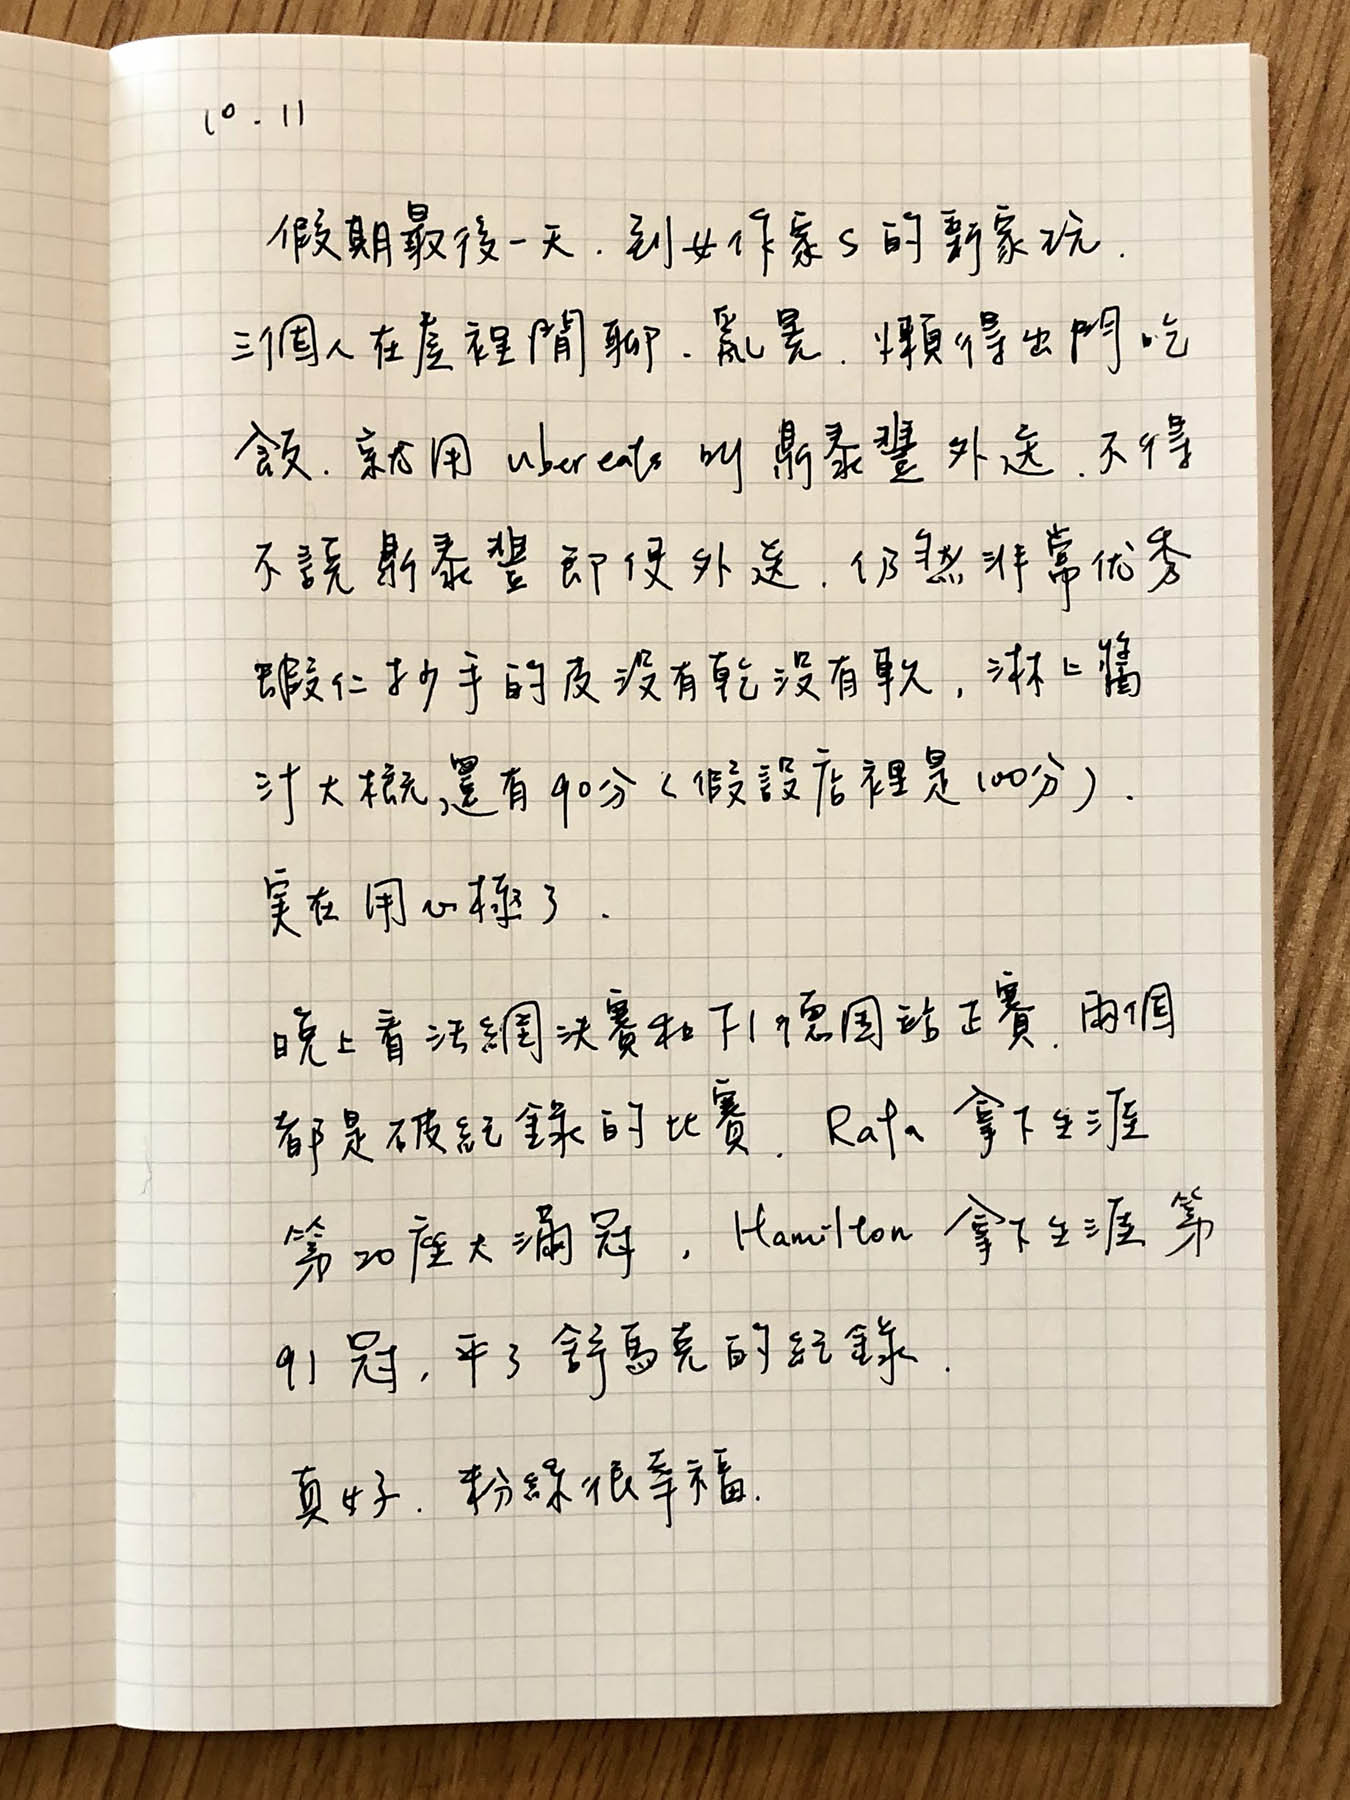 10.11
假期最後一天.到女作家S的新家玩.
三個人在屋裡閒聊.亂晃.懶得出門吃
飯.就用ubereats叫鼎泰豐外送.不得
不說鼎泰豐即便外送.仍然非常优秀
蝦仁抄手的皮沒有乾沒有軟,淋上醬
汁大概還有90分(假設店裡是100分).
実在用心極了.
晚上看法網決賽和F1德国站正賽.兩個
都是破紀錄的比賽.Rafa拿下生涯
第20座大滿冠,Hamilton拿下生涯第
91冠,平了舒馬克的紀錄.
真好.粉絲很幸福.